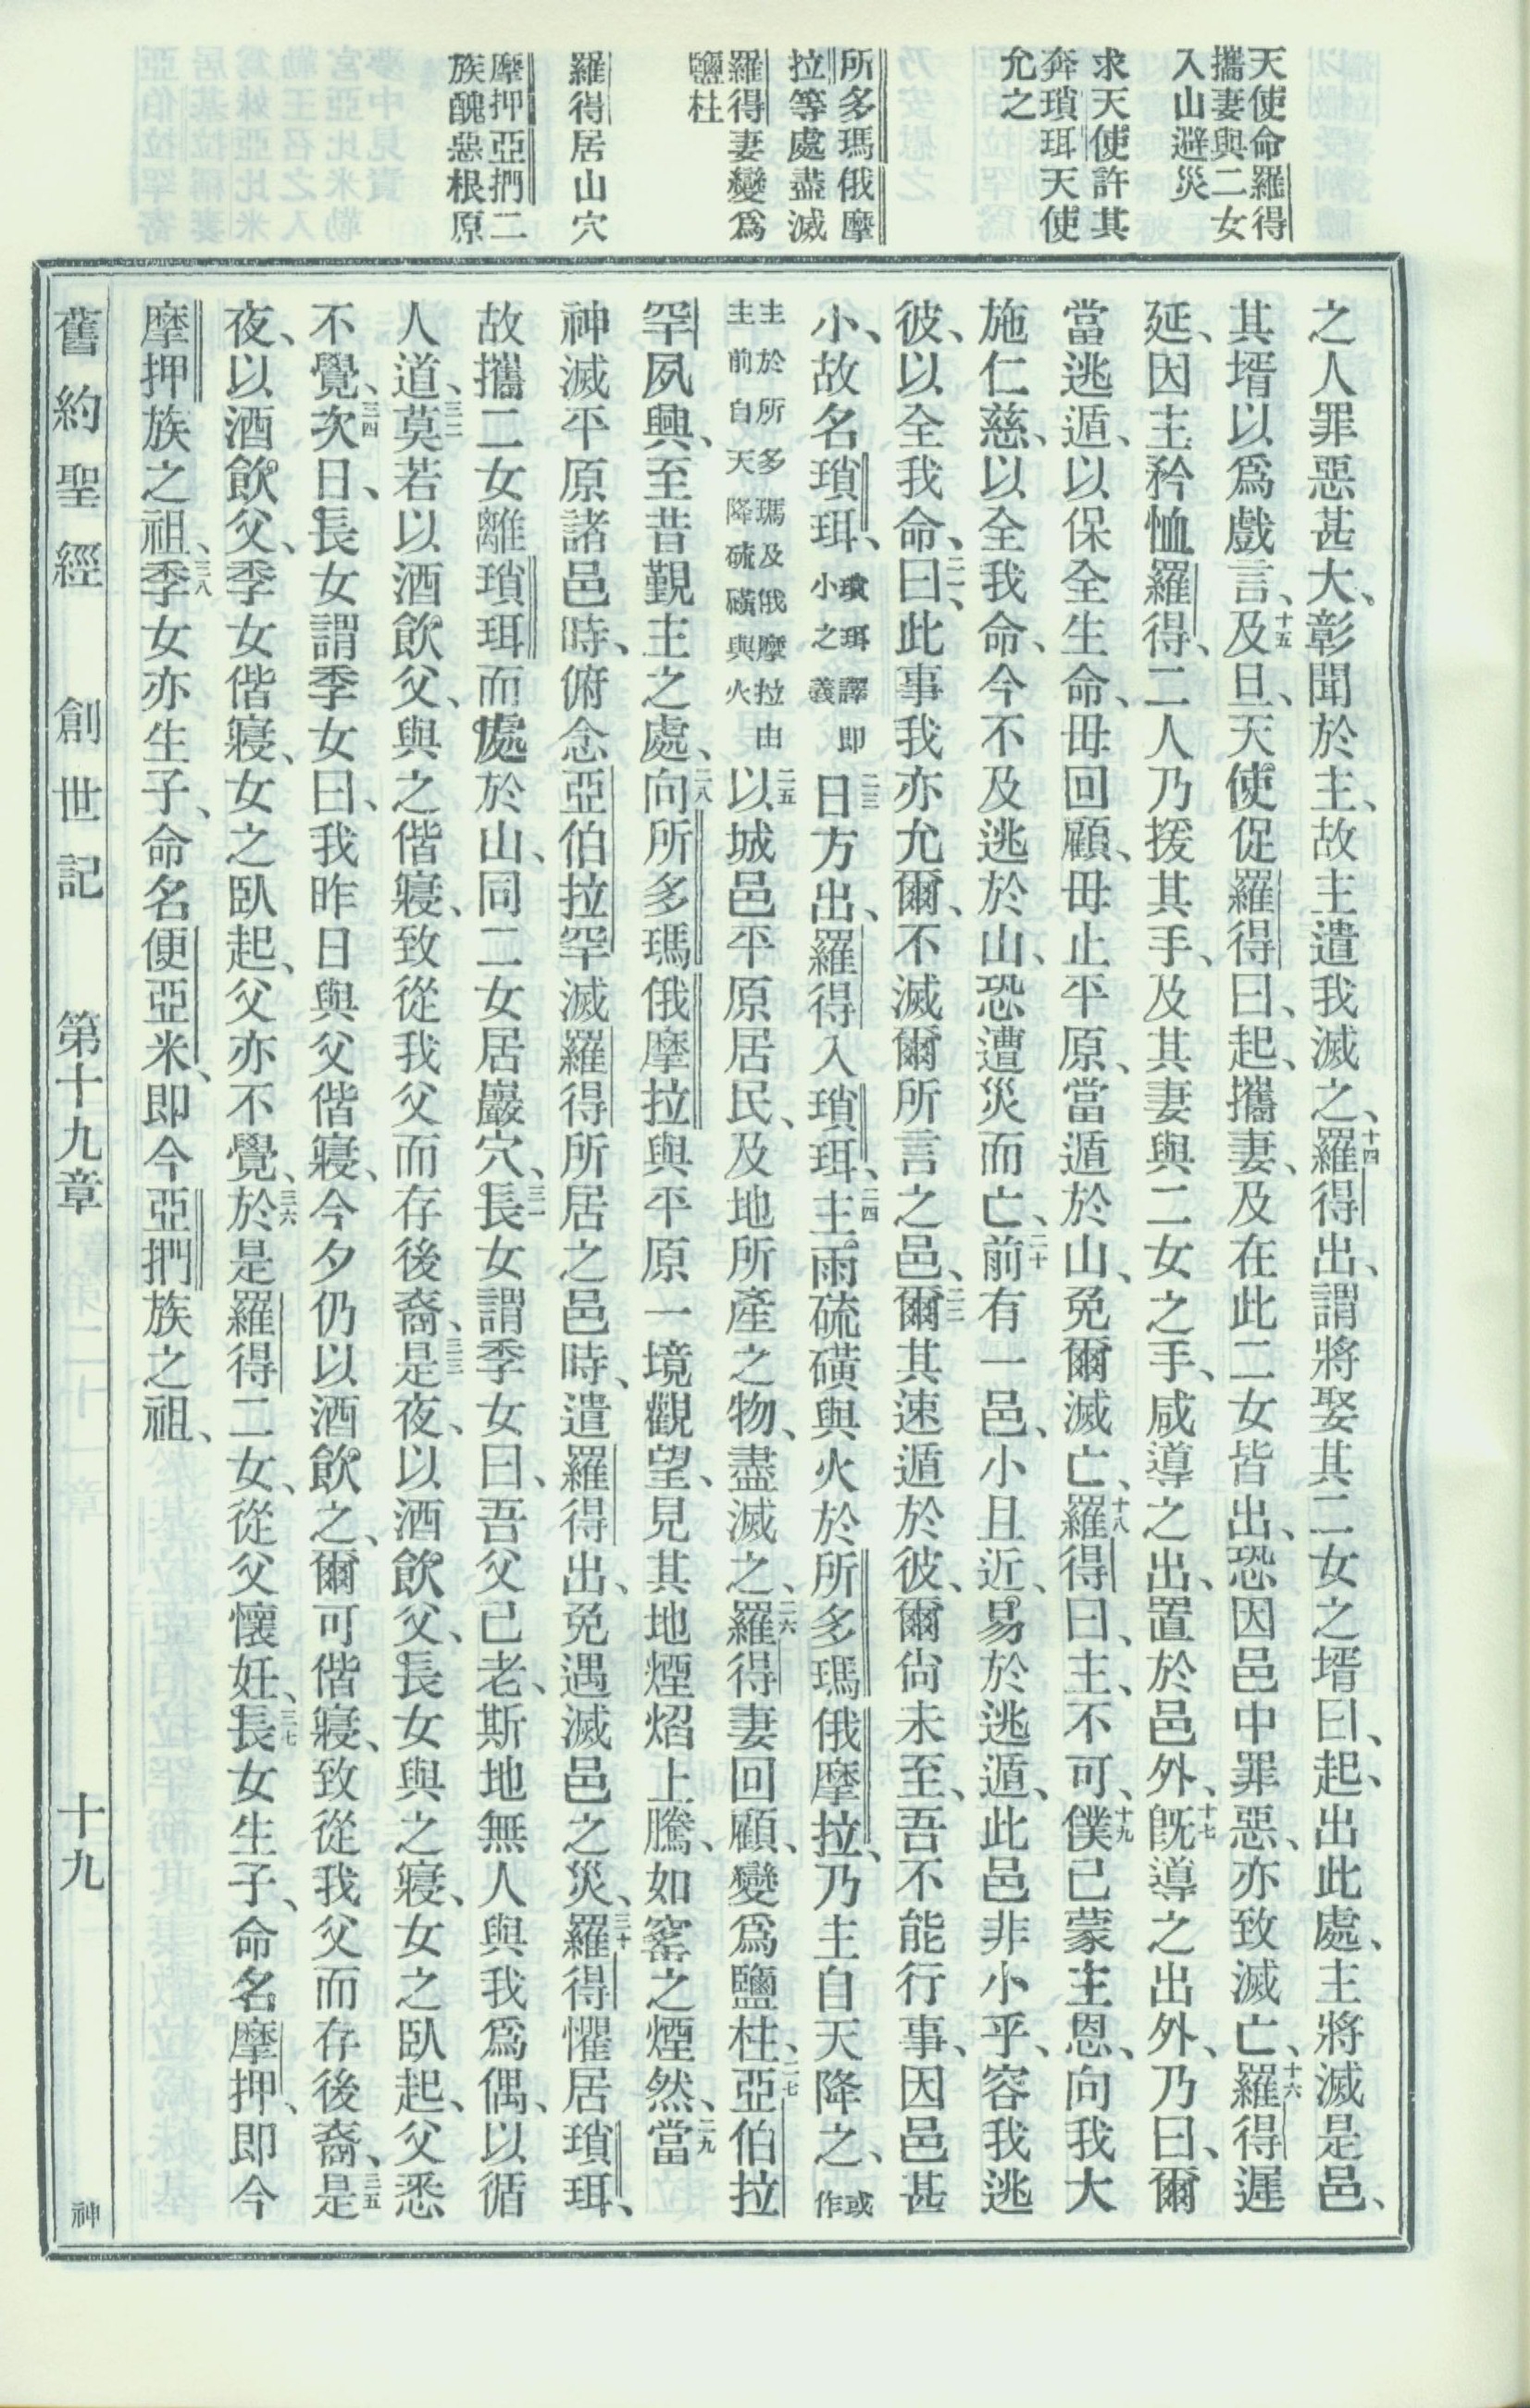 天使命羅得
攜妻與二女
入山避災
求天使許其
奔瑣珥天使
允之
所多瑪俄摩
拉等處盡滅
羅得妻變爲
鹽柱
羅得居山穴
摩押亞捫二
族醜惡根原
之人罪惡甚大、彰聞於主、故主遣我滅之、十四羅得出、謂將娶其二女之壻曰、起、出此處、主將滅是邑、
其壻以爲戲言、十五及旦、天使促羅得曰、起、攜妻、及在此二女皆出、恐因邑中罪惡、亦致滅亡、十六羅得遲
延、因主矜恤羅得、二人乃援其手、及其妻與二女之手、咸導之出、置於邑外、十七旣導之出外、乃曰、爾
當逃遁、以保全生命、毋回顧、毋止平原、當遁於山、免爾滅亡、十八羅得曰、主、不可、十九僕已蒙主恩、向我大
施仁慈、以全我命、今不及逃於山、恐遭災而亡、二十前有一邑、小且近、易於逃遁、此邑非小乎、容我逃
彼、以全我命、二一曰、此事我亦允爾、不滅爾所言之邑、二二爾其速遁於彼、爾尙未至、吾不能行事、因邑甚
小、故名瑣珥、瑣珥譯即小之義二三日方出、羅得入瑣珥、二四主雨硫磺與火於所多瑪俄摩拉、乃主自天降之、或作
主於所多瑪及俄摩拉由主前自天降硫磺與火二五以城邑平原居民、及地所產之物、盡滅之、二六羅得妻回顧、變爲鹽柱、二七亞伯拉
罕夙興、至昔覲主之處、二八向所多瑪俄摩拉與平原一境觀望、見其地煙焰上騰、如窰之煙然、二九當
神滅平原諸邑時、俯念亞伯拉罕滅羅得所居之邑時、遣羅得出、免遇滅邑之災、三十羅得懼居瑣珥、
故攜二女離瑣珥而處於山、同二女居巖穴、三一長女謂季女曰、吾父已老、斯地無人與我爲偶、以循
人道、三二莫若以酒飲父、與之偕寢、致從我父而存後裔、三三是夜、以酒飲父、長女與之寢、女之臥起、父悉
不覺、三四次日、長女謂季女曰、我昨日與父偕寢、今夕仍以酒飲之、爾可偕寢、致從我父而存後裔、三五是
夜、以酒飲父、季女偕寢、女之臥起、父亦不覺、三六於是羅得二女、從父懷妊、三七長女生子、命名摩押、即今
摩押族之祖、三八季女亦生子、命名便亞米、即今亞捫族之祖、
舊約聖經　創世記　第十九章　十九　神